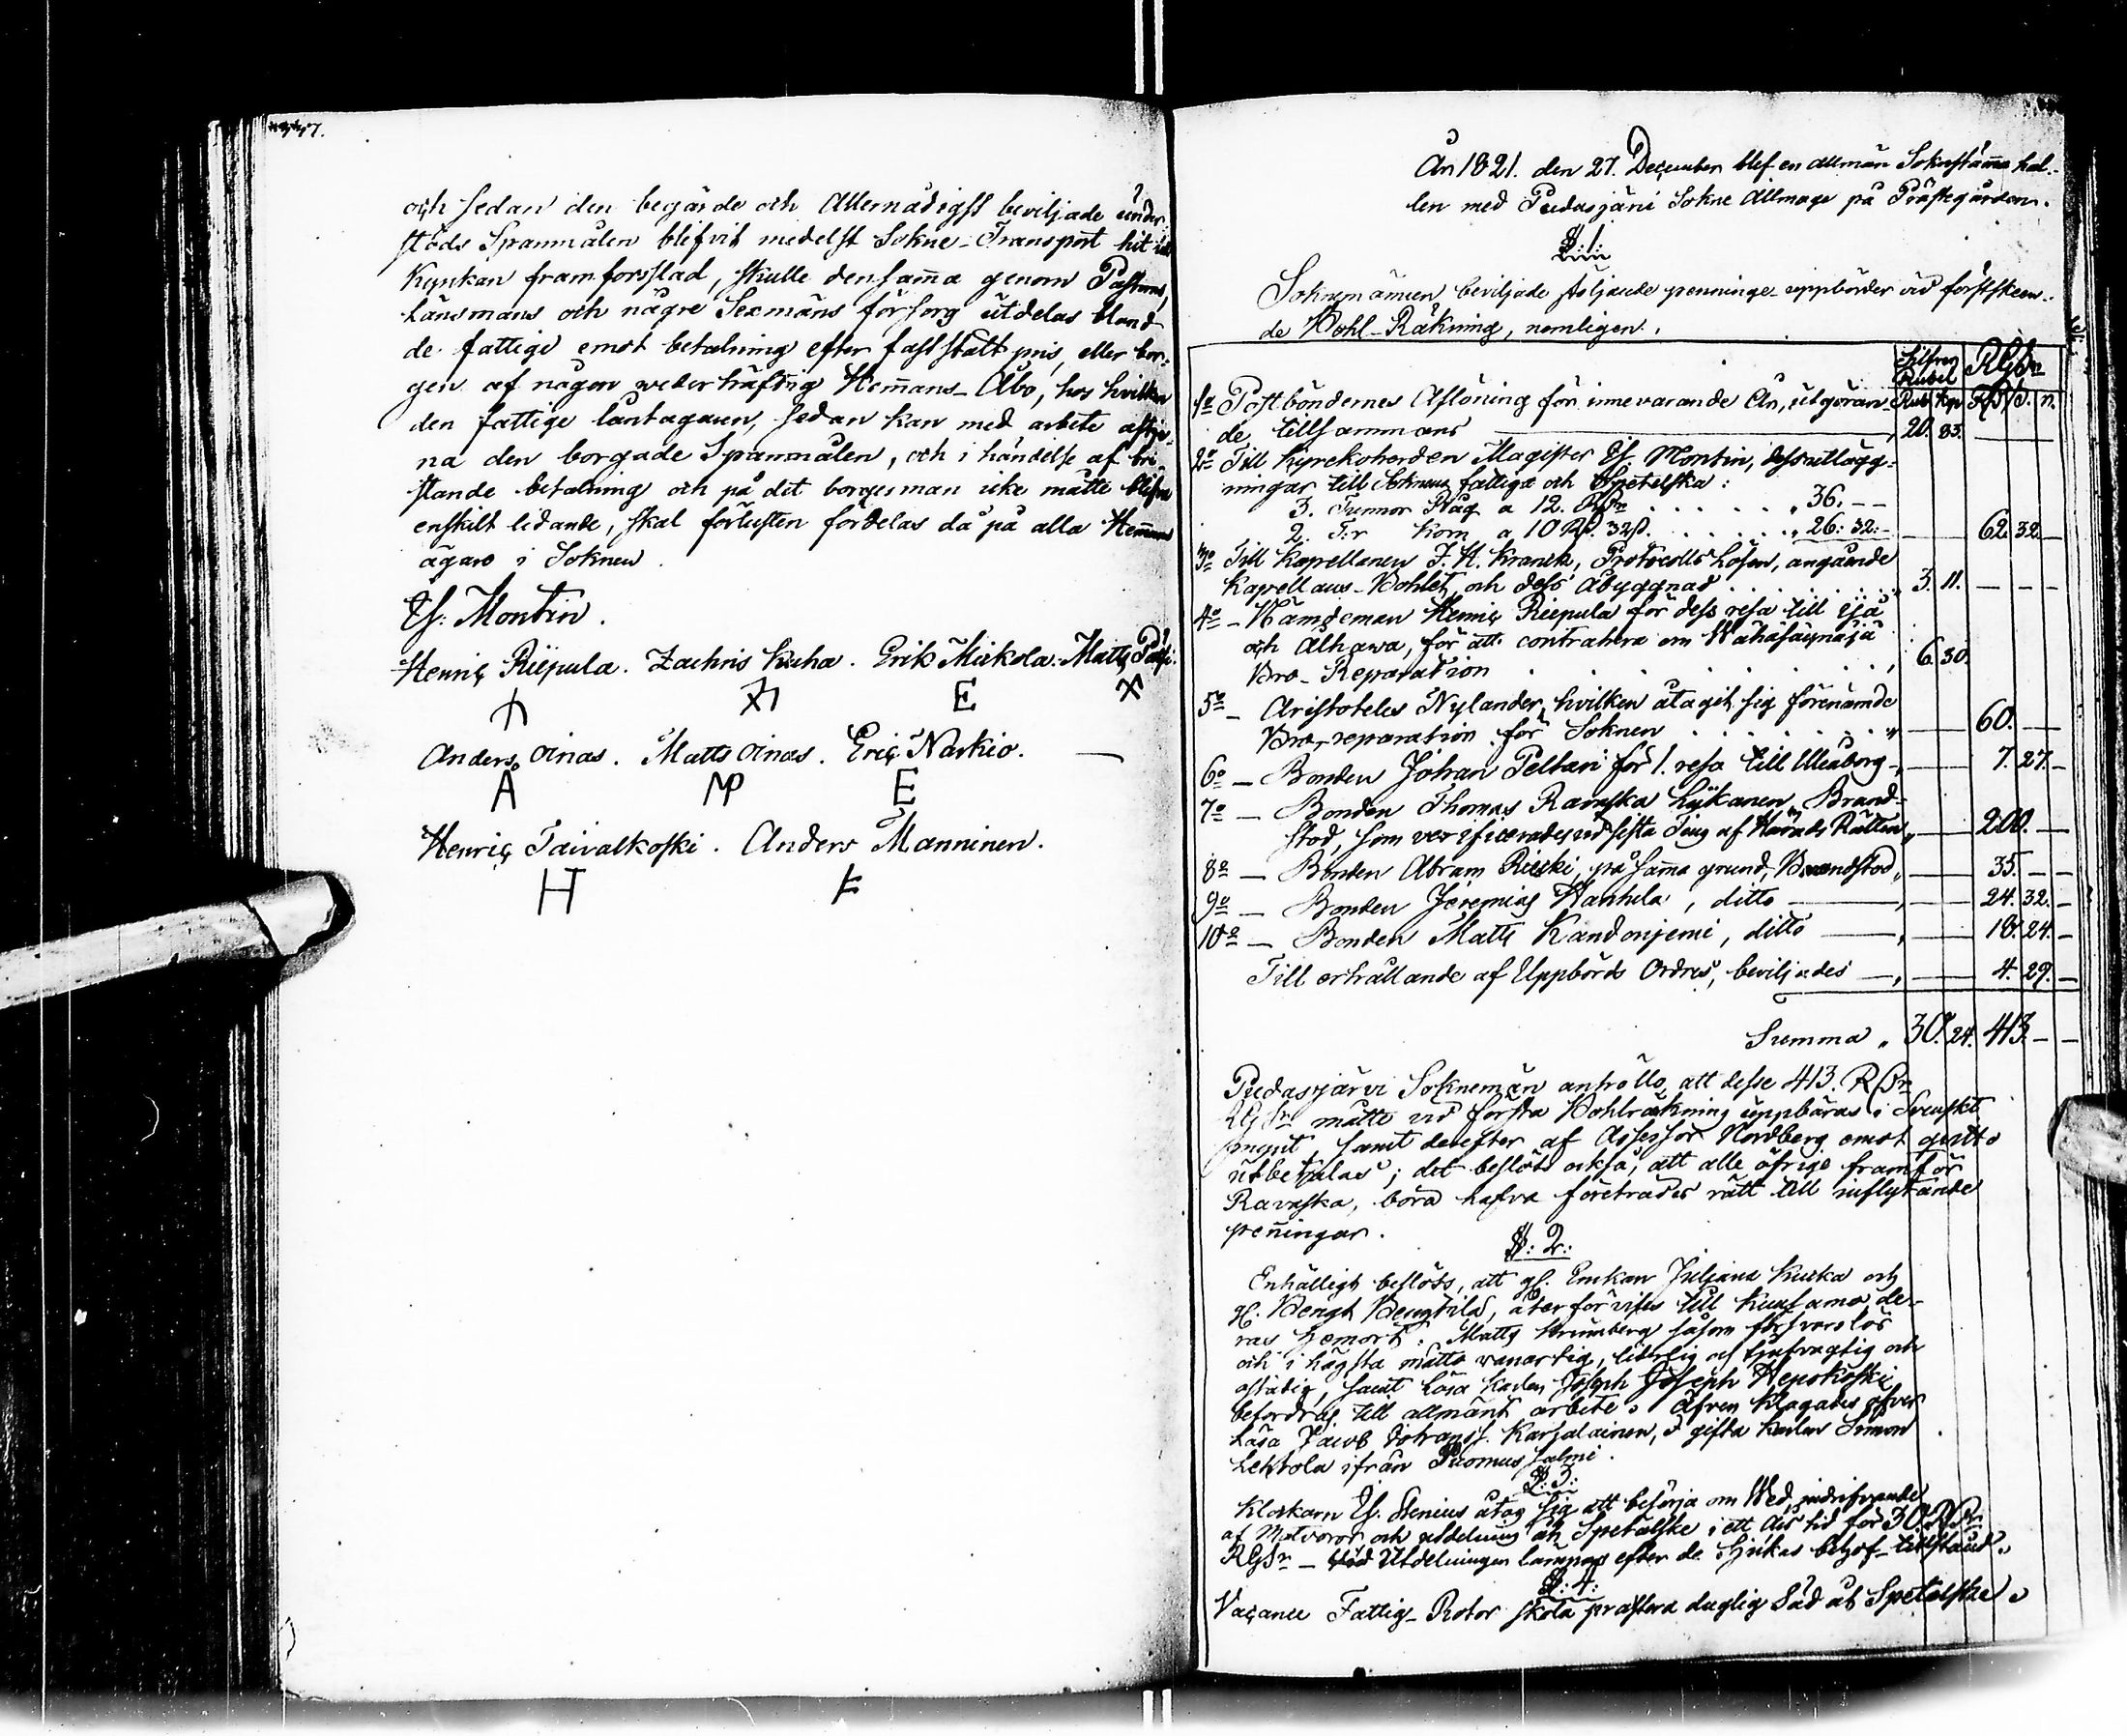 och sedan den begärde och Allernådigst beviljade under
stöds Spanmålen blifvit medelst Sokne-Transport hit till
Kyrkan framforsslad, skulle densam̄a genom Pastors,
Länsmans och någre Sexmäns försorg utdelas bland
de fattige emot betalning efter fastställt pris, eller bor-
gen af någon vederhäftig Hem̄ans-Åbo, hos hvilken
den fattige låntagaren, sedan kan med arbete aftje-
na den borgade Spanmålen, och i händelse af bri-
stande betalning och på det borgesman icke måtte blifva
enskilt lidande, skal förlusten fördelas då på alla Hem̄ans
ägare i Soknen.
Es. Montin.
Henric Riepula. Zachris Kuha. Erik Mickola. Matts
E X
Anders Oinas. Matts Oinas. Eric Narkio.
A M E
Henric Taivalkoski. Anders Manninen.
H
År 1821. den 27. December blef en allmän Soknestäm̄a hål-
len med Pudasjärvi Sokne Allmoge på Prästegården.
§. 1:
Soknemännen beviljade följande penninge-uppbörder vid förstskeen-
de Bohl-Räkning, nemligen:
Silfver Rubel RGSr
1o Postböndernes Aflöning för innevarande År, utgöran- Rub kop Rd s. r.
de tillsammans 20. 83.
2o Till Kyrckoherden Magister Es. Montin, dess utlägg-
ningar till Soknens fattiga och Spetelska:
3. Tunnor Råg a 12. Rdr . . . . . . 36. - -
2. T:r Korn a 10 Rd. 32 s. . . . . . 26: 32: - 62. 32. -
3o Till Kapellanen J. H. Kranck, Protocolls Lösen, angående
Kapellans-Bohlet, och dess Åbyggnad . . . . . 3. 11.
4o - Nämdeman Henric Riepula för dess resa till Ijå
och Alhawa, för att contrahera om
Bro-Reparation . . . . . . 6. 30.
5o - Aristoteles Nylander, hvilken åtagit sig förenämde
Bro-reparation för Soknen . . . . . . 60. -
6o - Bonden Johan Peltari för 1. resa till Uleåborg - 7. 27. -
7o - Bonden Thomas Ravaska Lykanen, Brand-
stod, som verificerades vid sista Ting af Härads Rätten 200. -
8o - Bonden Abram Riekki, på sam̄a grund, Brandstod, 35. - -
9o - Bonden Jeremias Hanhela, ditto - 24. 32. -
10o - Bonden Matts Kandoniemi, ditto - 18. 24. -
Till erhållande af Uppbörds Ordres, beviljades - 4. 29. -
Summa 30. 24. 413. - -
Pudasjärvi Soknemän anhöllo, att desse 413. Rdr
RGSr måtte vid första Bohlräkning uppbäras i Svenskt
mynt, samt derefter af Assessor Nordberg emot qvitto
utbetalas; det beslöts också, att alle öfrige framför
Ravaska, böra hafva företrädes rätt till inflytande
pen̄ingar.
§: 2:
Enhälligt beslöts, att gl. Enkan Juliana Kurka och
gl. Bengt Bengtila, återförvises till Kusamo, de-
ras hemort. Matts Strömberg såsom försvarslös
och i högsta måtto vanartig, liderlig och tjufvagtig och
ostadig, samt Lösa karlen Joseph Josephss. Hepokoski
befordras till allmänt arbete. Äfven klagades öfver
Lösa Jacob Johanss. Karjalainen, o gifta karlen Simon
Lehtola ifrån Suomussalmi.
§: 3:
Klockarn Es. Stenius åtog sig att besörja om Wed, indrifvande
af Matvaror och utdelning åt Spetälske i ett års tid för 30. Rdr
RGSr - Utdelningen lämpas efter de Sjukas behof-tillstånd.
§: 4:
Vacance Fattig-Rotor skola præstera duglig Säd åt Spetälske.